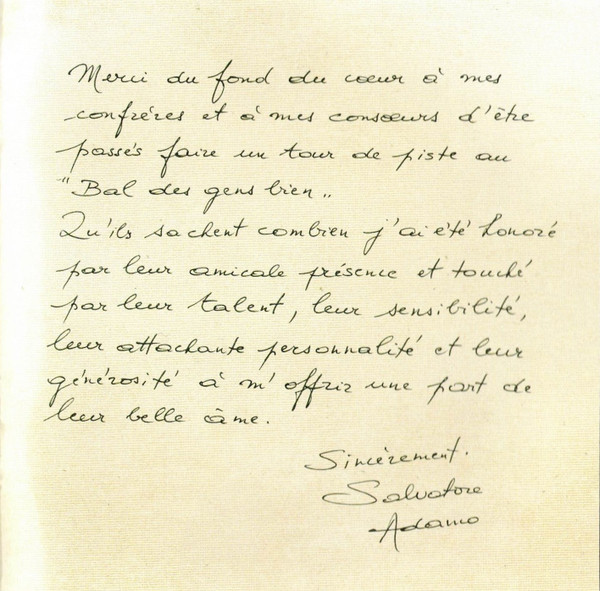 Merci du fond du cœur à mes
confrères et à mes consœurs d'être
passés faire un tour de piste au
"Bal des gens bien"
Qu'ils sachent combien j'ai été honoré
par leur amicale présence et touché
par leur talent, leur sensibilité,
leur attachante personnalité et leur
générosité à m'offrir une part de
leur belle âme.
Sincèrement.
Salvatore
Adamo